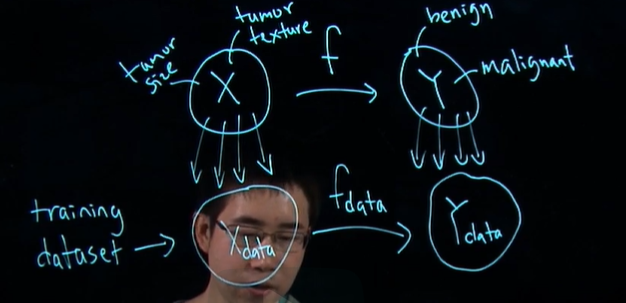 tumor
texture
tumor
size
X
f
benign
Y
malignant
training
dataset
X data
f data
Y data